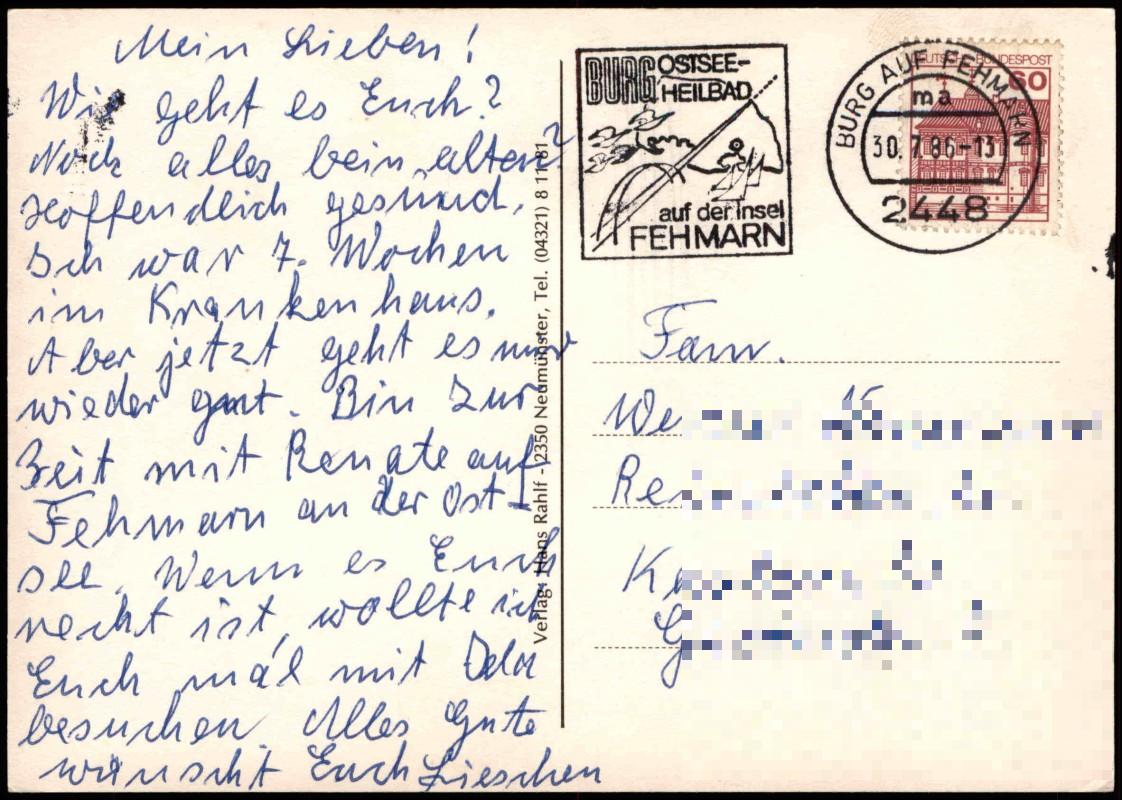 Mein Lieben!
Wie geht es Euch?
Noch alles beim alten?
Hoffendlich gesund.
Ich war 7. Wochen
im Krankenhaus.
Aber jetzt geht es mir
wieder gut. Bin Zur
Zeit mit Renate auf
Fehmarn an der Ost-
see. Wenn es Euch
recht ist, wollte ich
Euch mal mit Oda
besuchen Alles Gute
wünscht Euch Lieschen
Verlag: Hans Rahlf - 2350 Neumünster, Tel. (04321) 8 11 81
BURG OSTSEE-
HEILBAD
auf der Insel
FEHMARN
DEUTSCHE BUNDESPOST
60
BURG AUF FEHMARN
ma
30.7.86-13
2448
Fam.
We
Re
Ke
G